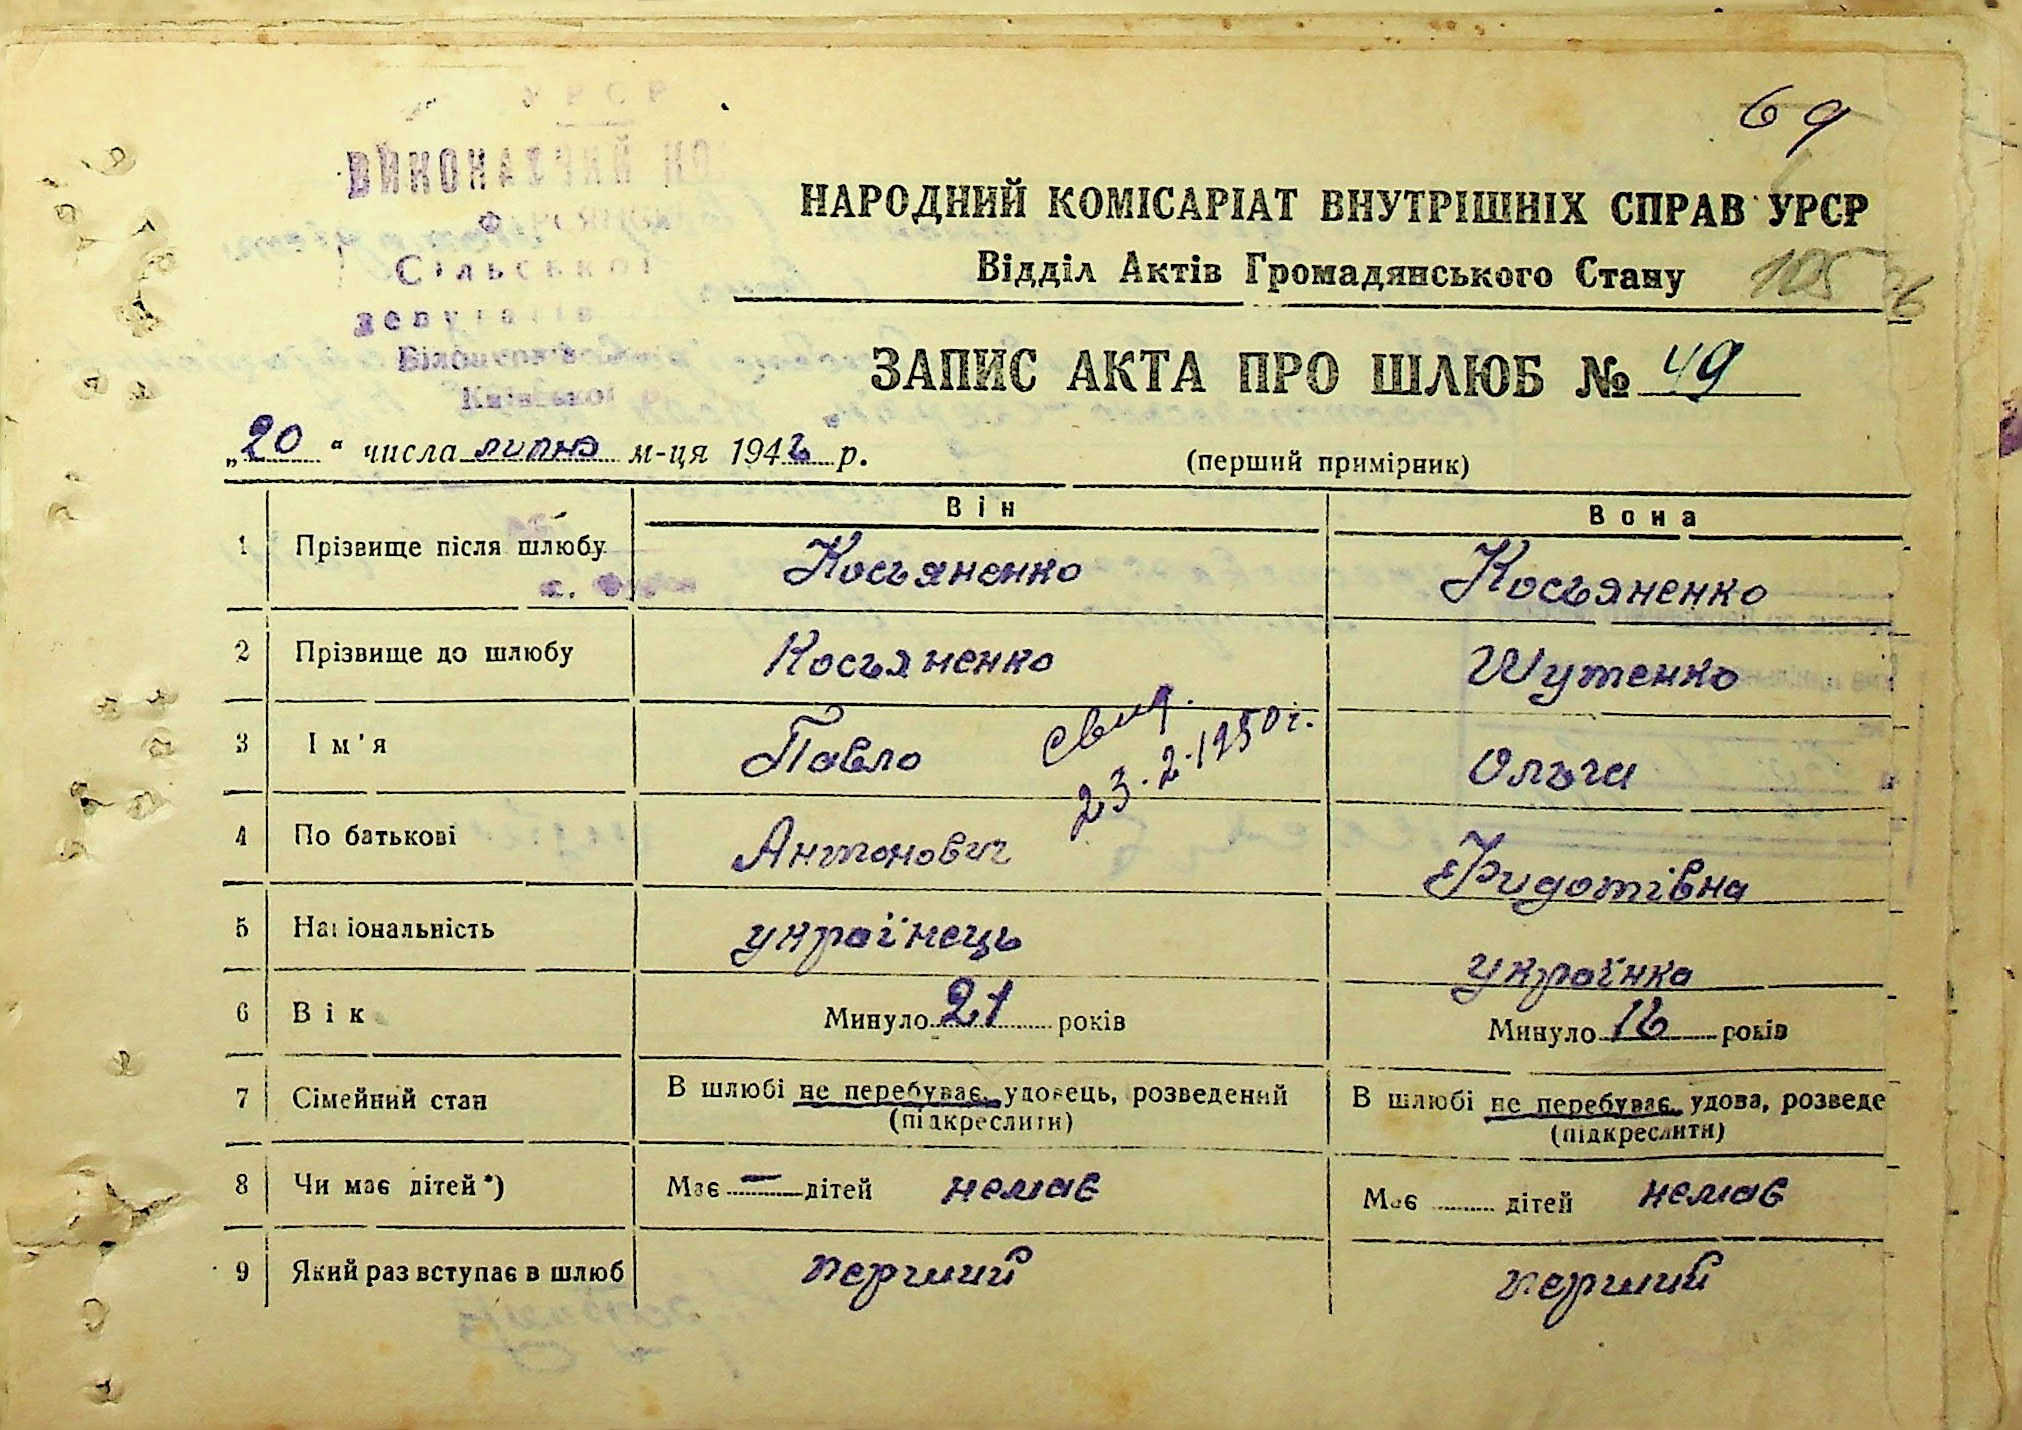 69
УРСР
ВИКОНАВЧИЙ
НАРОДНИЙ КОМІСАРІАТ ВНУТРІШНІХ СПРАВ УРСР
Сільської
Відділ Актів Громадянського Стану 105
депутатів
Київської
ЗАПИС АКТА ПРО ШЛЮБ № 49
„20“ числа липня м-ця 1942 р. (перший примірник)
Він Вона
1 Прізвище після шлюбу Косьяненко Косьяненко
2 Прізвище до шлюбу Косьяненко Шутенко
3 Ім'я Павло Ольга
свид.
23.2.1950 г.
4 По батькові Антонович Фидотівна
5 Національність українець українка
6 Вік Минуло 21 років Минуло років
7 Сімейний стан В шлюбі не перебуває, удовець, розведений В шлюбі не перебуває, удова, розведе
(підкреслити) (підкреслити)
8 Чи має дітей*) Має – дітей немає Має дітей немає
9 Який раз вступає в шлюб перший перший